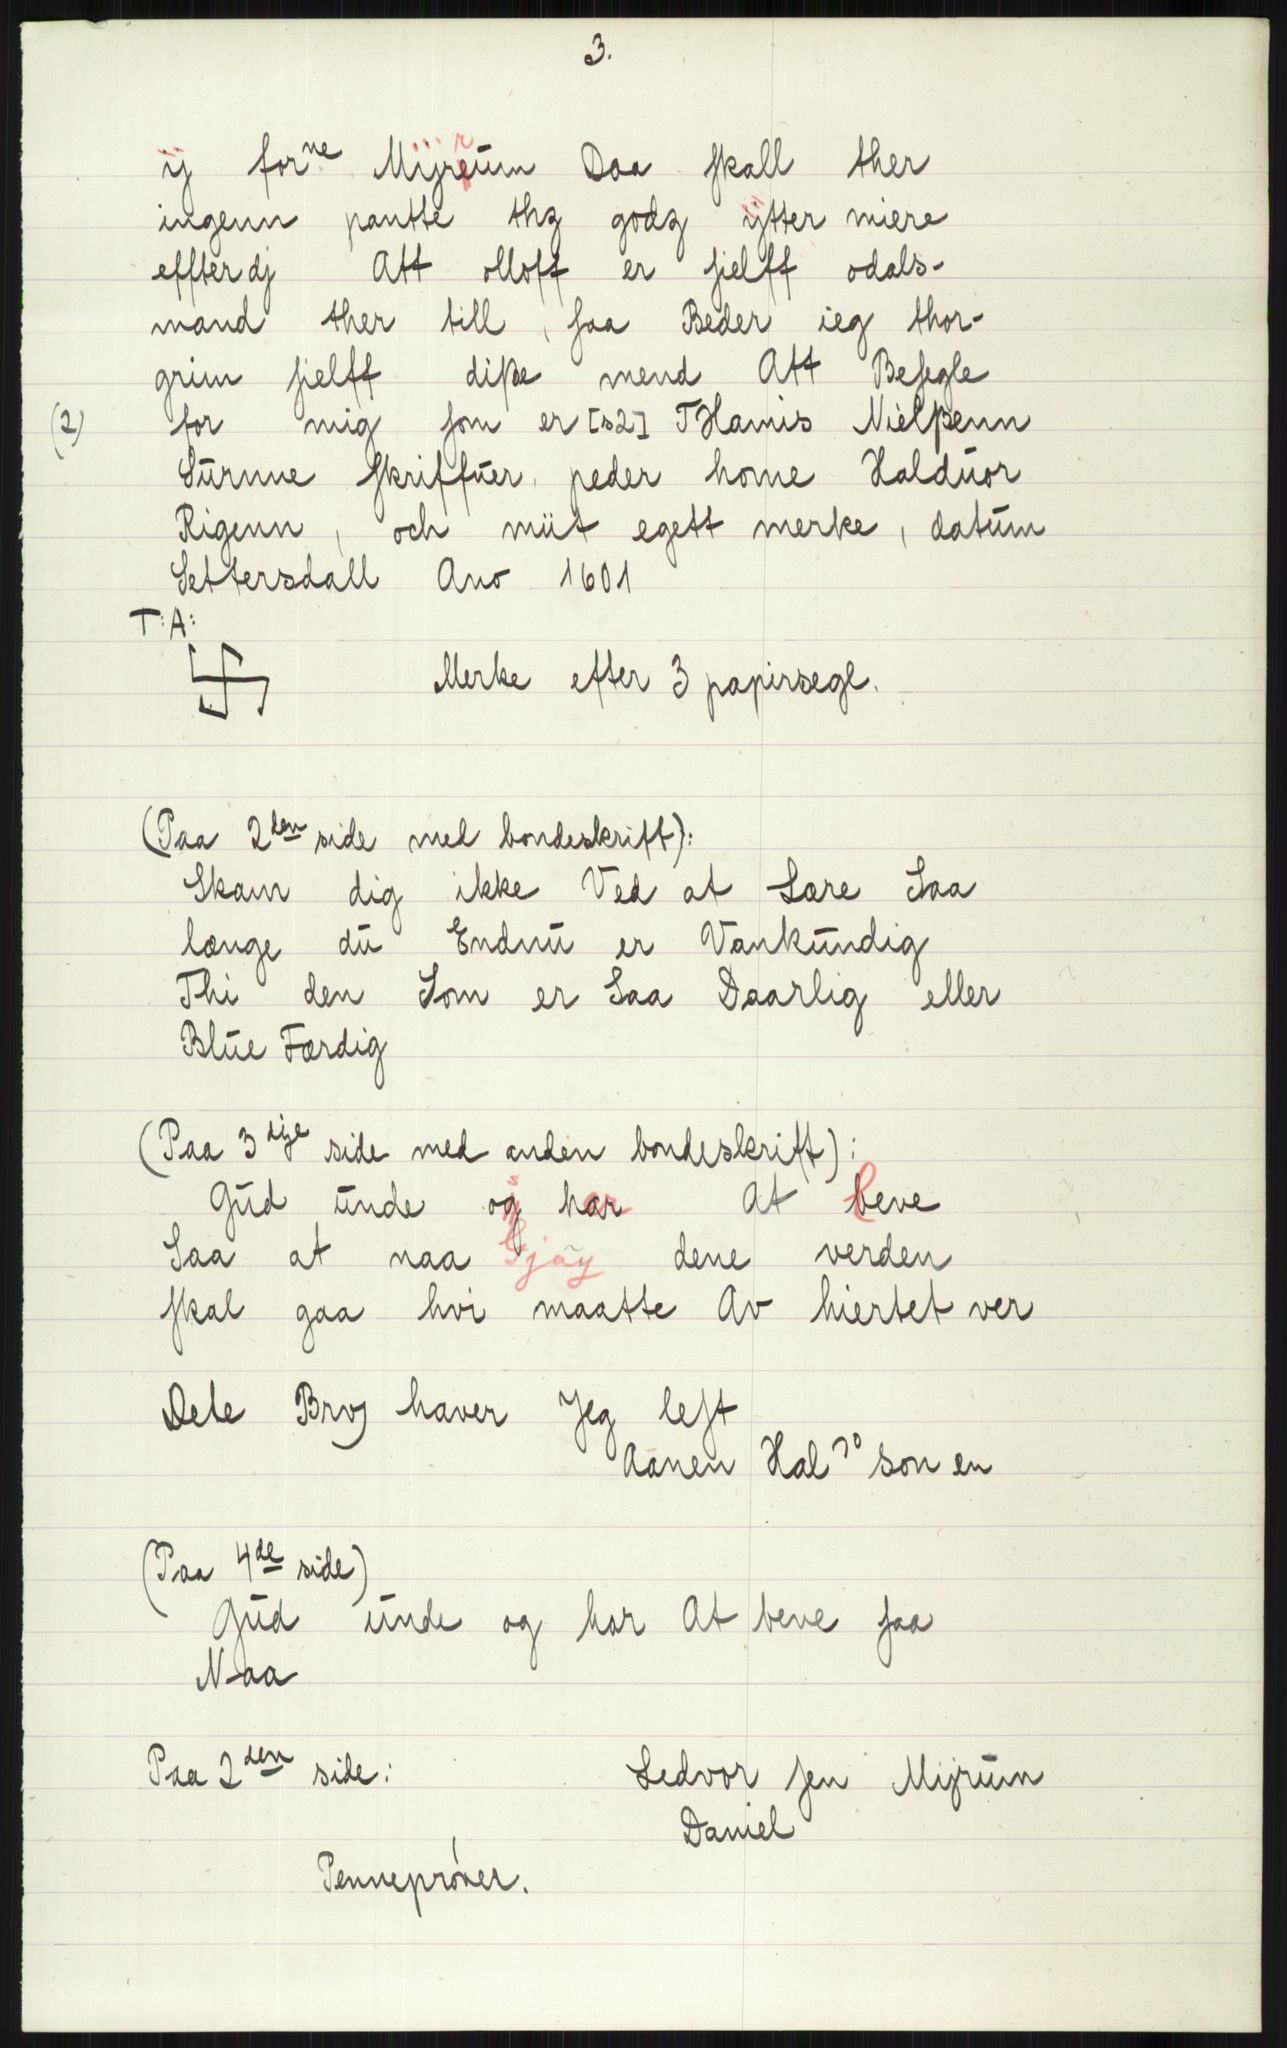 3.
ij forne Mijrum Daa skall ther
ingenn pantte thz godz ÿtter miere
effterdj Att olloff er sielff odals-
mand ther till, saa Beder ieg thor-
grim sielff diße mend Att Besegle
(2) for mig som er [s2] THamis Nielßenn
Surnne skriffuer, peder home Halduor
Rigenn, och mit egett merke, datum
Settersdall Ano 1601
T:A:
Merke efter 3 papirsegl.
(Paa 2den side med bondeskrift):
Skam dig ikke Ved at Lære Saa
længe du Endnu er Vankundig
Thi den Som er Saa Daarlig eller
Blue Færdig
(Paa 3dje side med anden bondeskrift):
Gud unde og har At beve
Saa at naa dene verden
skal gaa hvi maatte Av hiertet ver
Dete Brvj haver Jeg lest
Aanen Hal son en
(Paa 4de side)
Gud unde og har At beve saa
Naa
Paa 2den side: Ledvor sen Mijrum
Daniel
Penneprøver.